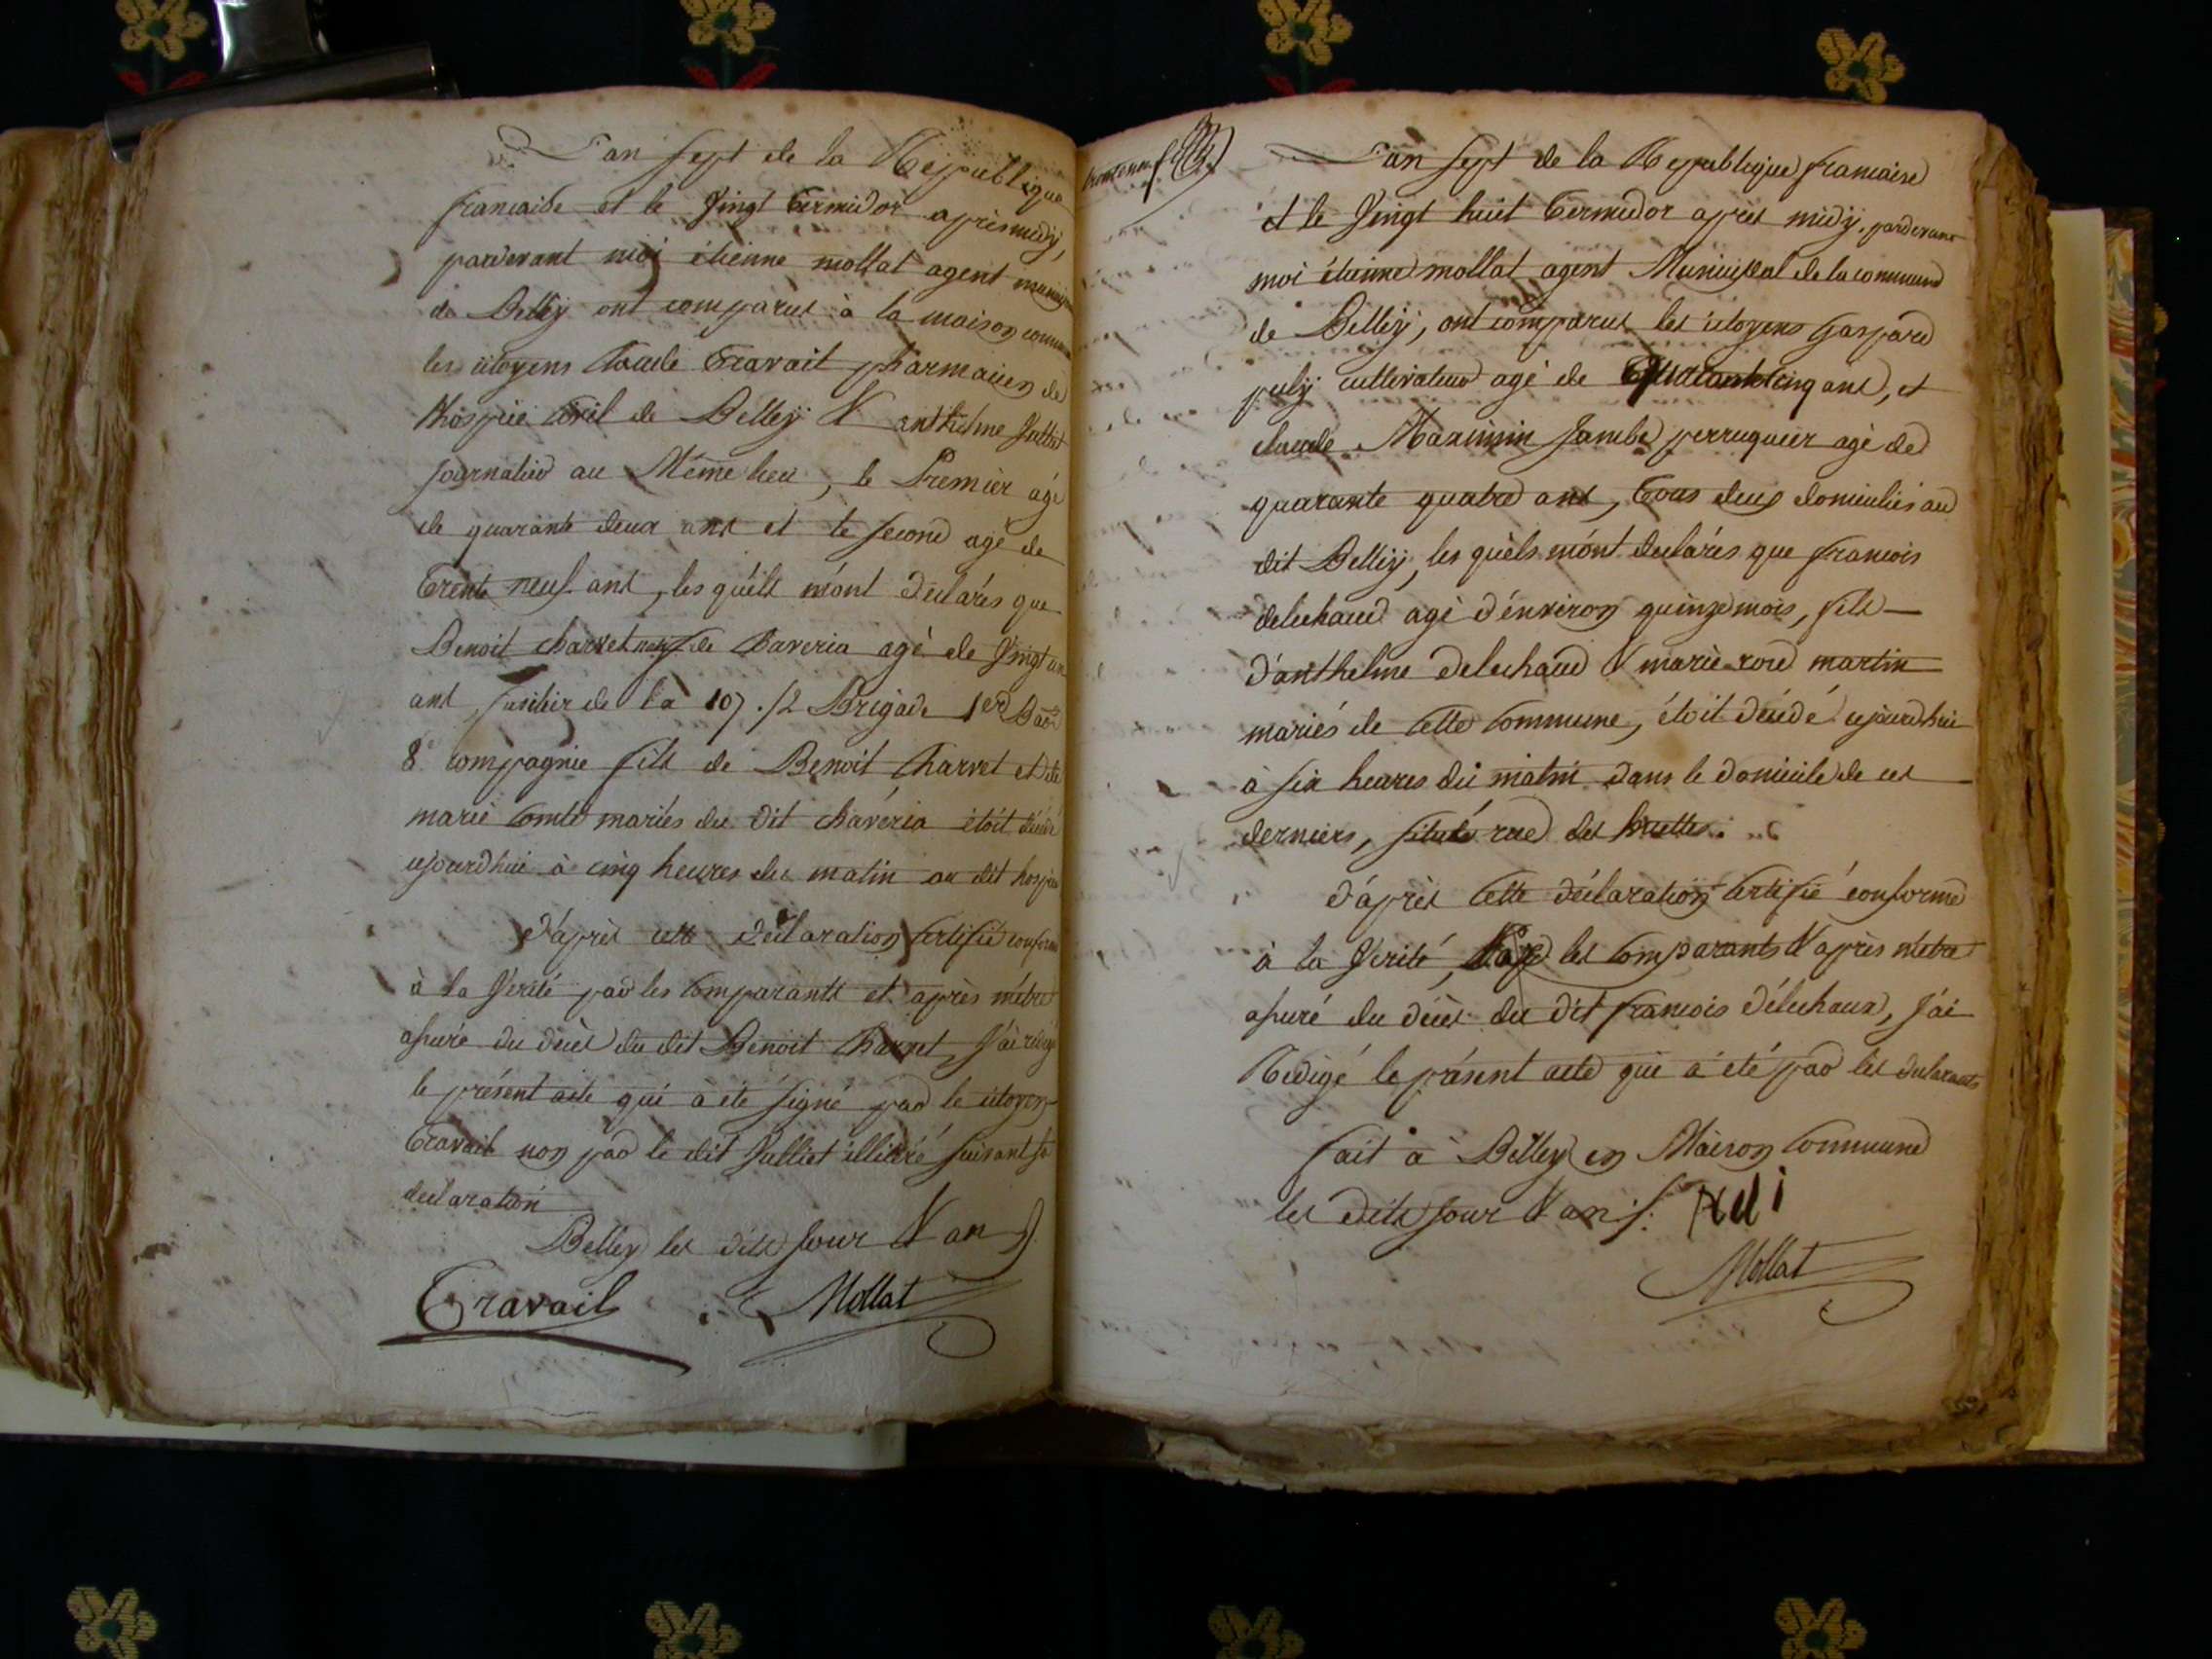 L'an sept de la Republique
francaise et le Vingt termidor après midÿ,
pardevant moi étienne mollat agent
de Belleÿ ont comparus à la maison
les citoyens Claude Travail pharmacien de
l'hospice civil de Belleÿ & anthelme Julliet
journalier au Même lieu, le Premier agé
de quarante deux ans et le second agé de
trente neuf ans, les quéls m'ont déclarés que
Benoit charvet de Chaveria agé de Vingt un
ans, fusilier de la 107. /2 Brigade 1er Baon
8e compagnie fils de Benoit Charvet et de
marie Comte mariés du dit chavéria étoit décédé
ajourdhui à cinq heures du matin au dit hospice
d'après cette déclaration Certifié conforme
à la Verité par les Comparants et après m'etre
assuré du décès du dit Benoit Charvet, J'ai rédigé
le présent acte qui à été signé par le citoyen
Travail non par le dit Julliet illitéré suivant sa
declaration
Belley les dits Jour & an
Travail Mollat
L'an sept de la Republique francaise
et le Vingt huit termidor après midÿ, pardevant
moi étienne mollat agent Municipal de la commune
de Belleÿ, ont comparus les citoyens Gaspard
cultivateur agé de Quarante cinq ans, et
claude Maximin Jambe perruquier agé de
quarante quatre ans, tous deux domiciliés au
dit Belleÿ, les quéls m'ont declarés que francois
delechaud agé d'énviron quinze mois, fils
d'anthelme delechaud & marie rose martin
mariés de Cette Commune, étoit décédé ajourdhui
à six heures du matin dans le domicile de ces
derniers, situé rue des
d'après Cette déclaration Certifié conforme
à la Verité, Par les Comparants & après m'etre
assuré du décès du dit francois délechaux, J'ai
Redigé le présent acte qui a été par les declarants
fait à Belley en Maison Commune
les dits Jour & an
Mollat